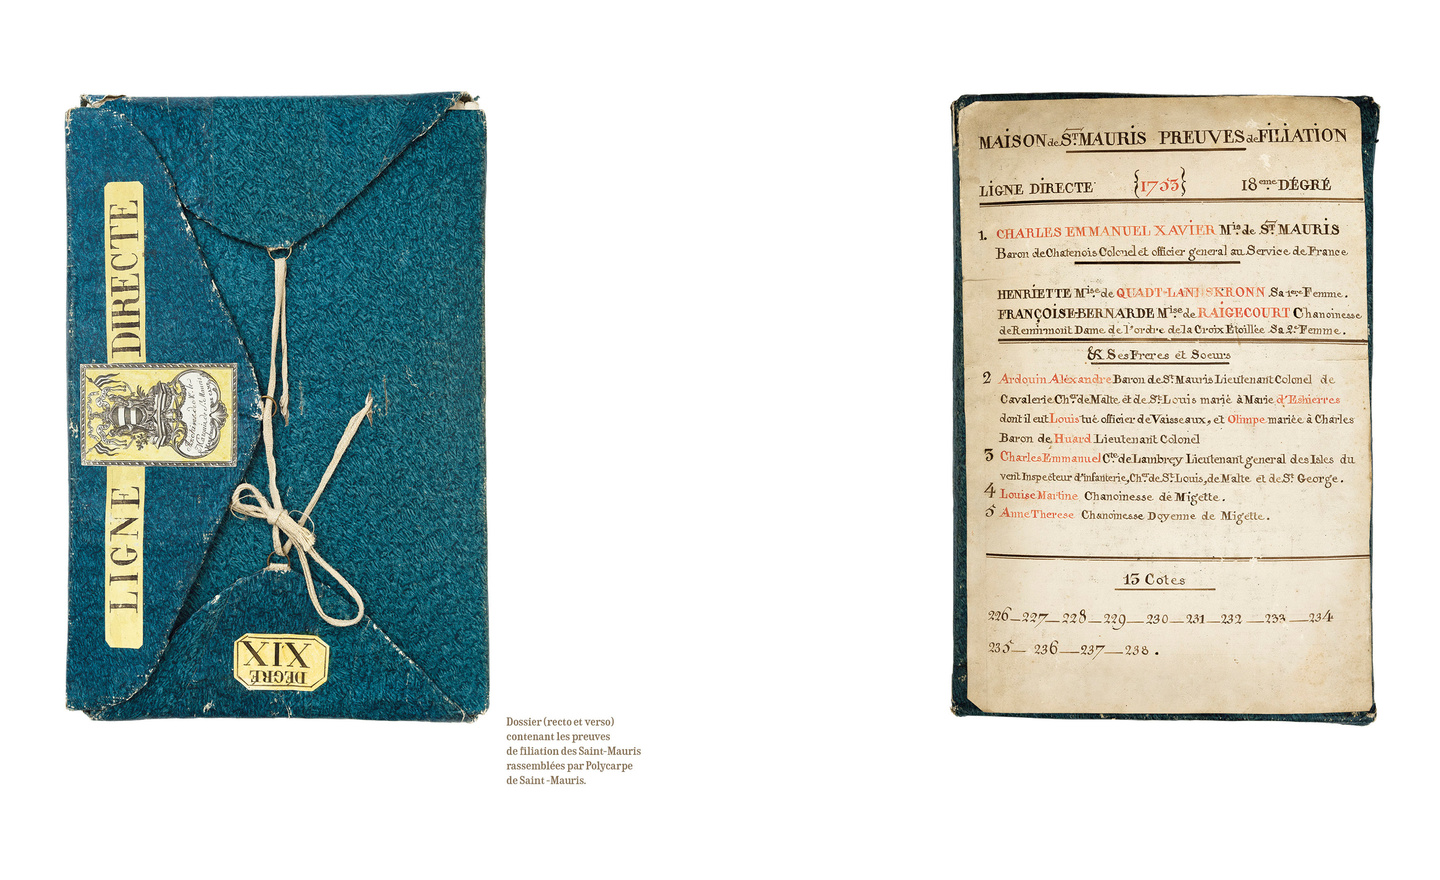 LIGNE DIRECTE
DÉGRÉ
XIX
Dossier (recto et verso)
contenant les preuves
de filiation des Saint-Mauris
rassemblées par Polycarpe
de Saint -Mauris.
MAISON de ST. MAURIS PREUVES de FILIATION
LIGNE DIRECTE {1753} 18eme DÉGRÉ
1. CHARLES EMMANUEL XAVIER Mis. de ST MAURIS
Baron de Chatenois Colonel et officier general au Service de France
HENRIETTE Mise de QUADT-LANDSKRONN Sa 1ere Femme.
FRANÇOISE-BERNARDE Mise de RAIGECOURT Chanoinesse
de Remirmont Dame de l'ordre de la Croix Étoillée Sa 2e Femme.
& Ses Freres et Soeurs
2 Ardouin Aléxandre Baron de St. Mauris Lieutenant Colonel de
Cavalerie Cher de Malte et de St. Louis marié à Marie d'Eshierres
dont il eut Louis tué officier de Vaisseaux, et Olimpe mariée à Charles
Baron de Huard Lieutenant Colonel
3 Charles Emmanuel Cte de Lambrey Lieutenant general des Isles du
vent Inspecteur d'infanterie, Cher de St. Louis, de Malte et de St George.
4 Louise Martine Chanoinesse de Migette.
5 Anne Therese Chanoinesse Doyenne de Migette.
13 Cotes
226_227_228_229_230_231_232_233_234
235_236_237_238.